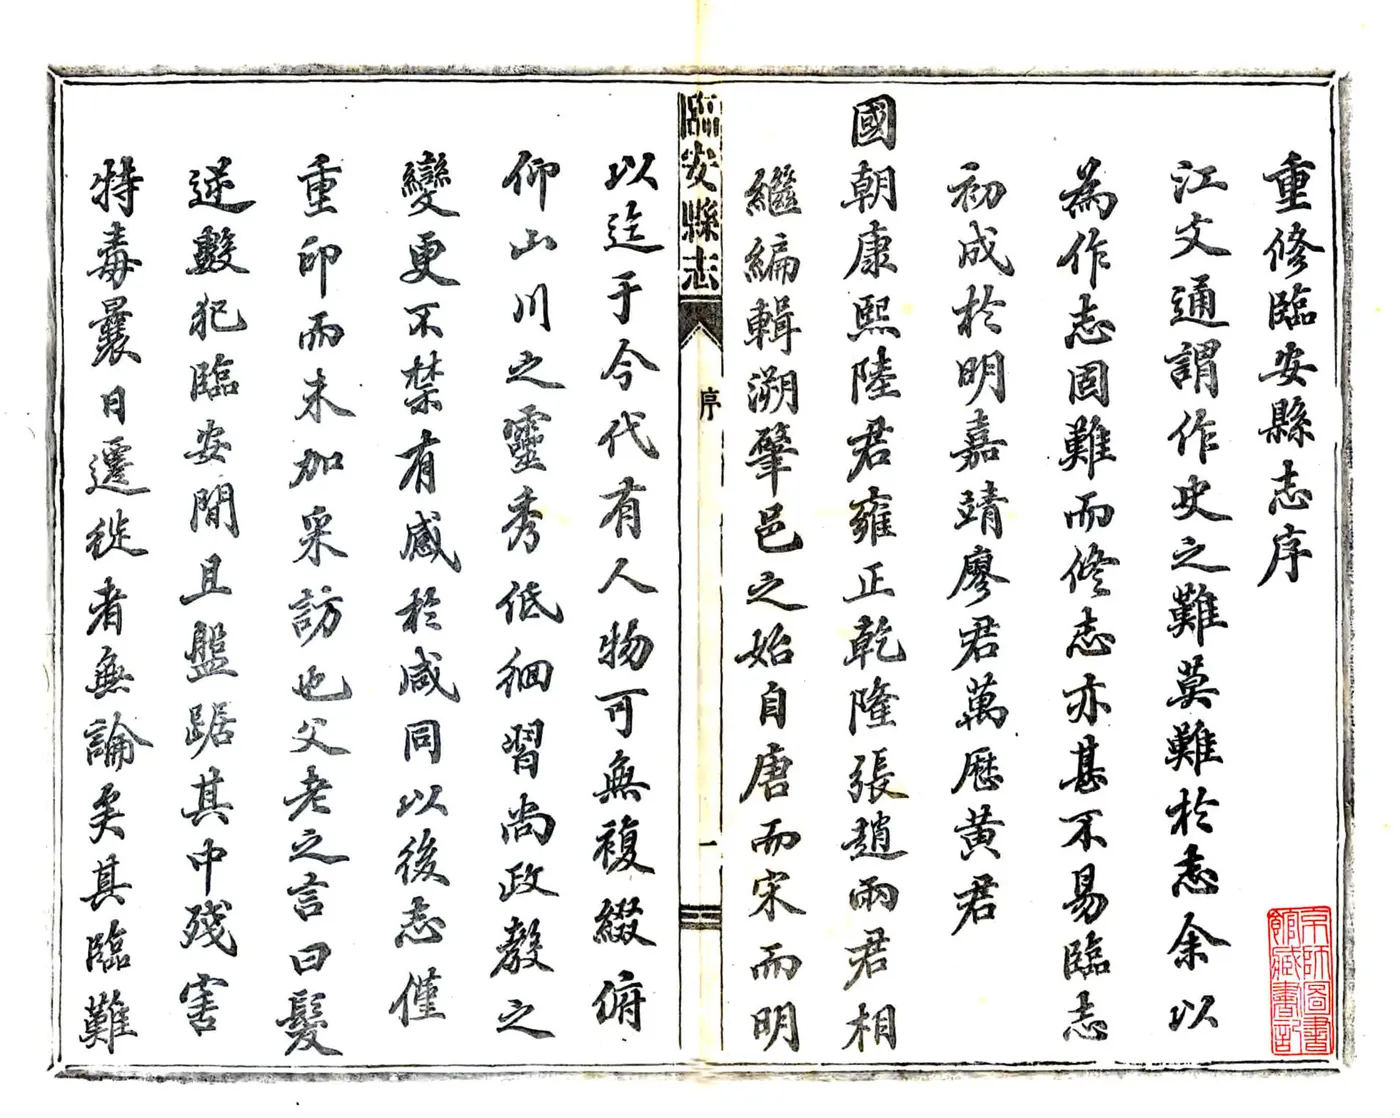 重修臨安縣志序
江文通謂作史之難莫難於志余以
為作志固難而修志亦甚不易臨志
初成於明嘉靖廖君萬厯黃君
國朝康熙陸君雍正乾隆張趙兩君相
繼編輯溯肇邑之始自唐而宋而明
臨安縣志
序
一
以迄于今代有人物可無複綴俯
仰山川之靈秀低徊習尚政教之
變更不禁有感於咸同以後志僅
重印而未加采訪也父老之言曰髮
逆數犯臨安間且盤踞其中殘害
特毒曩日遷徙者無論矣其臨難
京師圖書
館藏書記